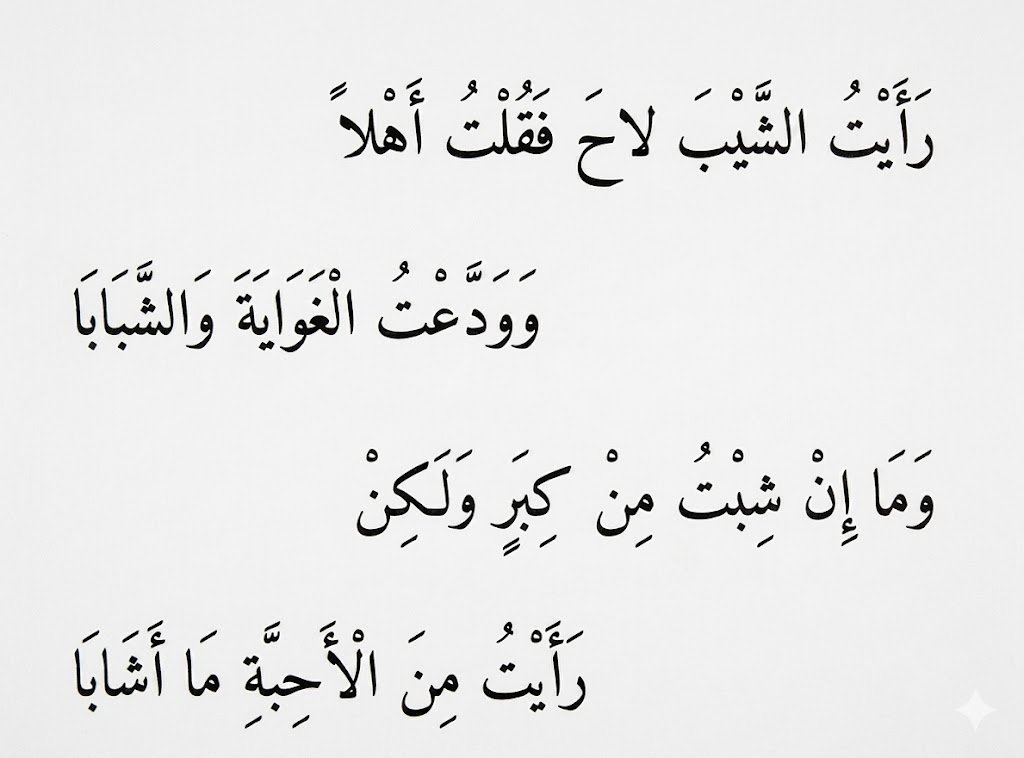 رَأَيْتُ الشَّيْبَ لاحَ فَقُلْتُ أَهْلاً
وَوَدَّعْتُ الْغَوَايَةَ وَالشَّبَابَا
وَمَا إِنْ شِبْتُ مِنْ كِبَرٍ وَلَكِنْ
رَأَيْتُ مِنَ الْأَحِبَّةِ مَا أَشَابَا